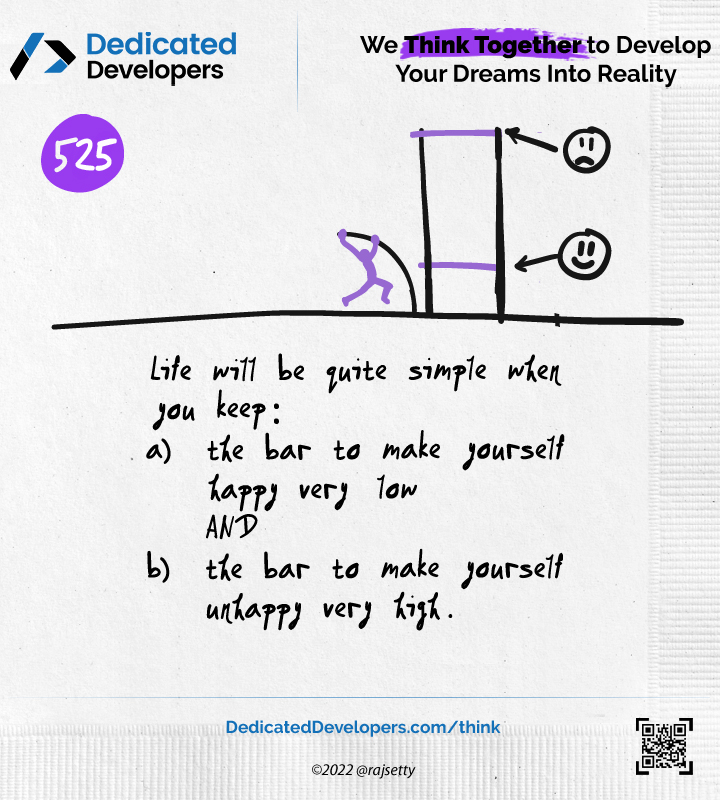 Dedicated
Developers
We Think Together to Develop
Your Dreams Into Reality
525
Life will be quite simple when
you keep:
a) the bar to make yourself
happy very low
AND
b) the bar to make yourself
unhappy very high.
DedicatedDevelopers.com/think
©2022 @rajsetty